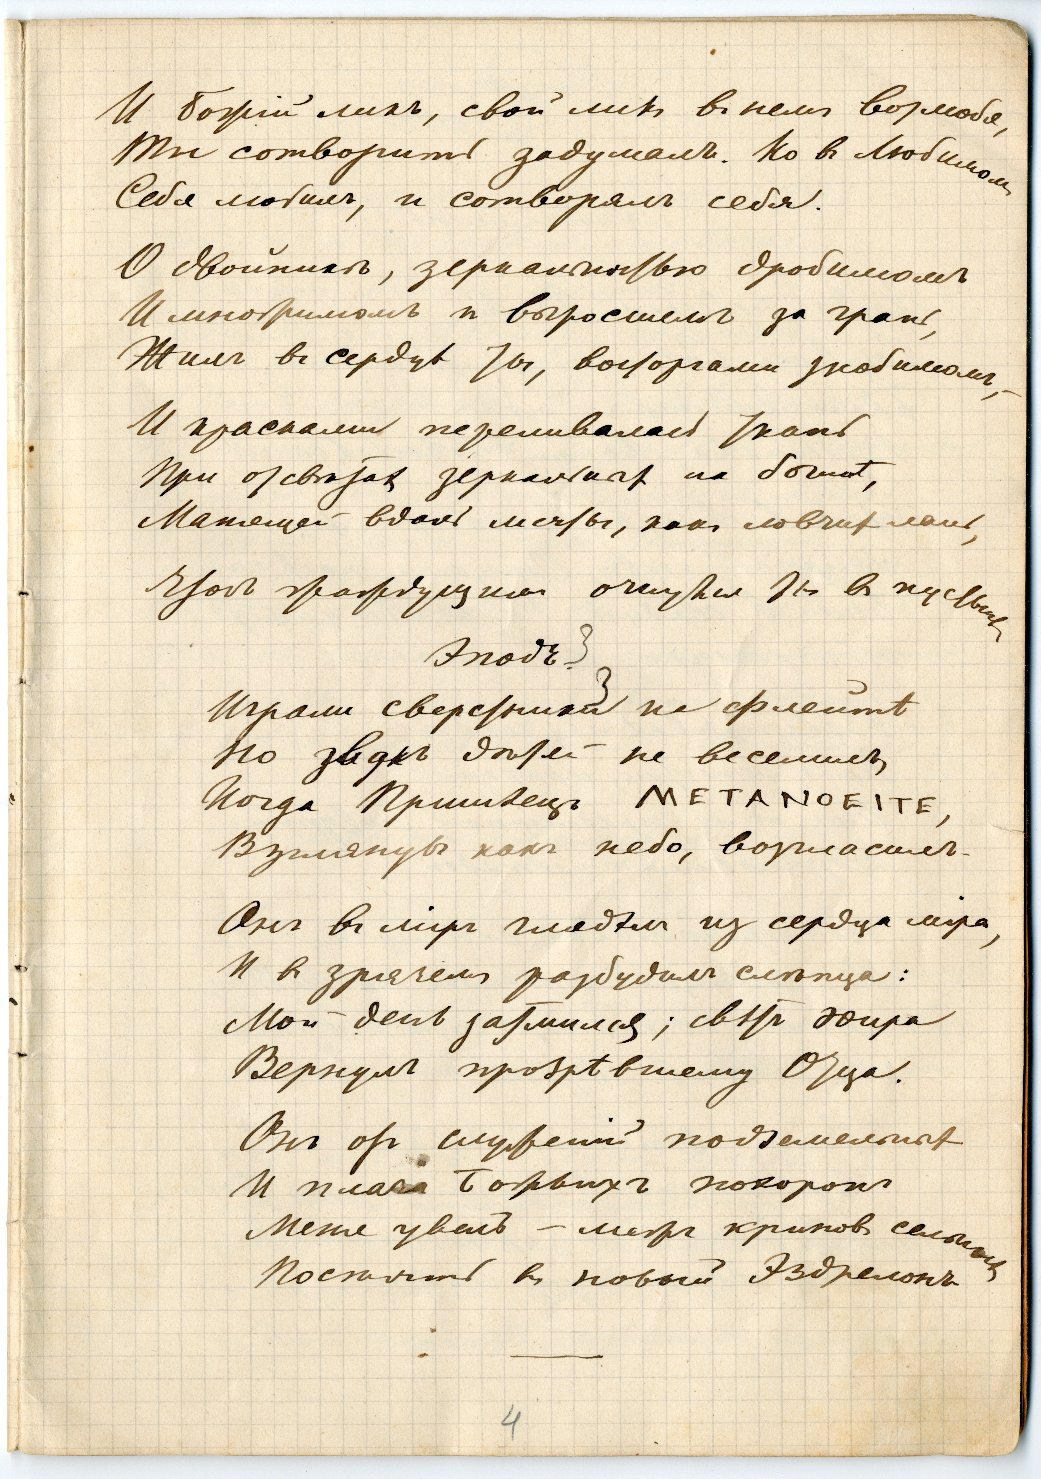 И Божій ликъ, свой ликъ въ немъ возлюбя,
Ты сотворить задумалъ. Но въ Любимомъ
Себя любилъ, и сотворялъ себя.
О двойникъ, зеркальностью дробимомъ
И многримомъ и выросшемъ за грань,
Жилъ въ сердцѣ ты, восторгами знобимомъ,–
И красками переливалась ткань
При отсвѣтахъ зеркальныхъ на болотѣ,
Манящей вдаль мечты, какъ ловчихъ лань,
Чтобъ жаждущимъ очнулся ты въ пустынѣ
Эподъ
Играли сверстники на флейтѣ
Но звукъ дѣтей не веселилъ,
Когда Пришлецъ ΜΕΤΑΝΟΕΙΤΕ,
Взглянувъ какъ небо, возгласилъ.
Онъ въ міръ глядѣлъ изъ сердца міра,
И въ зрячемъ разбудилъ слѣпца:
Мой день затмился; свѣтъ эѳира
Вернулъ прозрѣвшему Отца.
Онъ отъ служеній подземельныхъ
И плача Божьихъ похоронъ
Меня увелъ – межъ криновъ сельныхъ
Поскучать въ новый Эздрелонъ
4